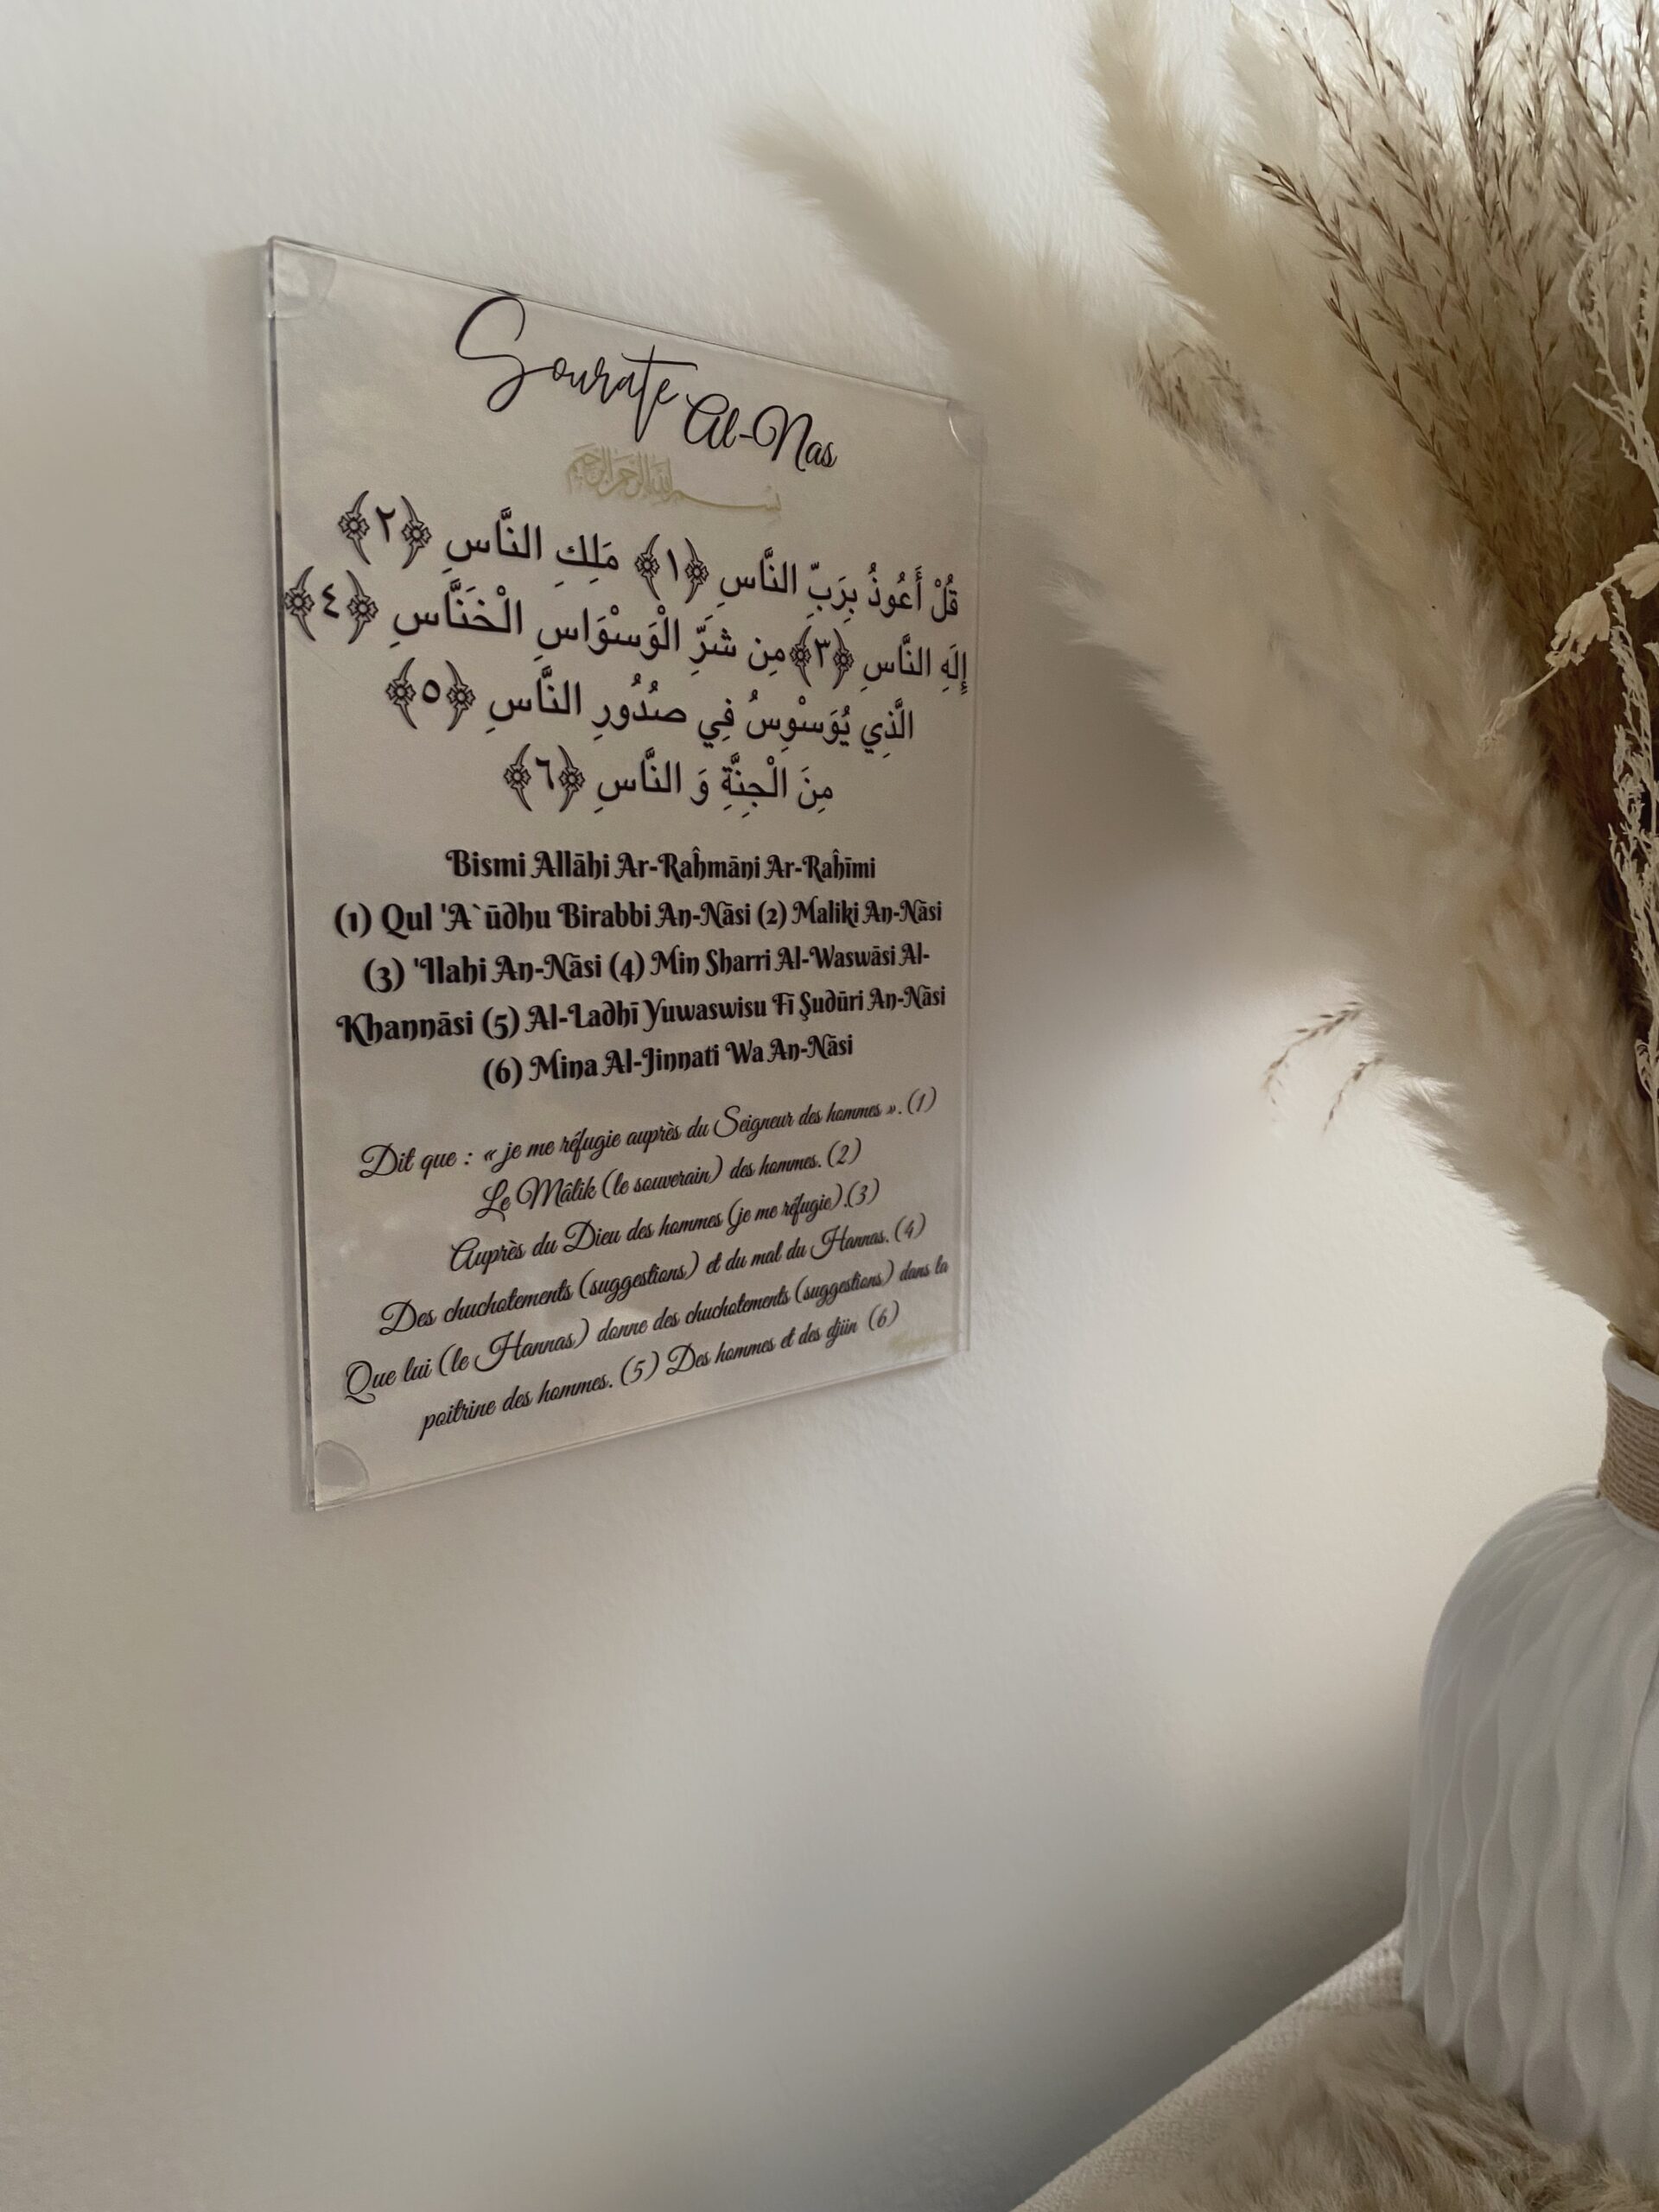 Sourate Al-Nas
بسم الله الرحمن الرحيم
قُلْ أَعُوذُ بِرَبِّ النَّاسِ ﴿١﴾ مَلِكِ النَّاسِ ﴿٢﴾
إِلَهِ النَّاسِ ﴿٣﴾ مِن شَرِّ الْوَسْوَاسِ الْخَنَّاسِ ﴿٤﴾
الَّذِي يُوَسْوِسُ فِي صُدُورِ النَّاسِ ﴿٥﴾
مِنَ الْجِنَّةِ وَ النَّاسِ ﴿٦﴾
Bismi Allāhi Ar-Raĥmāni Ar-Raĥīmi
(1) Qul 'A`ūdhu Birabbi An-Nāsi (2) Maliki An-Nāsi
(3) 'Ilahi An-Nāsi (4) Min Sharri Al-Waswāsi Al-
Khannāsi (5) Al-Ladhī Yuwaswisu Fī Şudūri An-Nāsi
(6) Mina Al-Jinnati Wa An-Nāsi
Dit que : « je me réfugie auprès du Seigneur des hommes ». (1)
Le Mâlik (le souverain) des hommes. (2)
Auprès du Dieu des hommes (je me réfugie).(3)
Des chuchotements (suggestions) et du mal du Hannas. (4)
Que lui (le Hannas) donne des chuchotements (suggestions) dans la
poitrine des hommes. (5) Des hommes et des djiin (6)